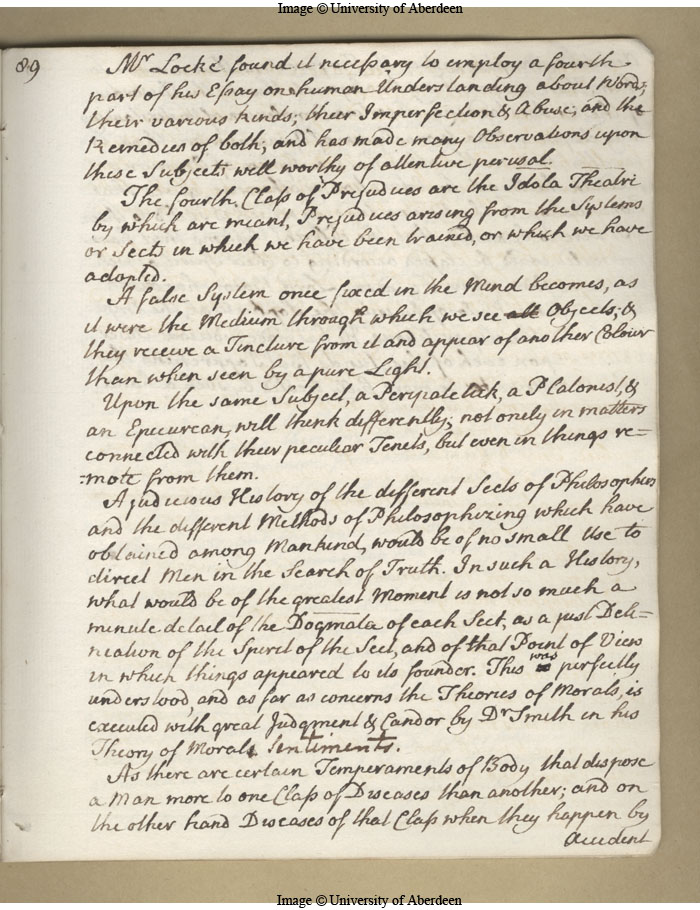 Image © University of Aberdeen
89
Mr Locke found it necessary to employ a fourth
part of his Essay on human Understanding about Words,
their various kinds; their Imperfection & Abuse, and the
Remedies of both; and has made many Observations upon
these Subjects well worthy of attentive perusal.
The fourth Class of Prejudices are the Idola Theatri
by which are meant, Prejudices arising from the Systems
or Sects in which we have been trained, or which we have
adopted.
A false System once fixed in the Mind becomes, as
it were the Medium through which we see all Objects; &
they receive a Tincture from it and appear of another Colour
than when seen by a pure Light.
Upon the same Subject, a Peripatetick, a Platonist, &
an Epicurean, will think differently; not onely in matters
connected with their peculiar Tenets, but even in things re=
=mote from them.
A judicious History of the different Sects of Philosophers
and the different Methods of Philosophizing which have
obtained among Mankind, would be of no small Use to
direct Men in the Search of Truth. In such a History,
what would be of the greatest Moment is not so much a
minute detail of the Dogmata of each Sect, as a just Deli=
neation of the Spirit of the Sect, and of that Point of View
in which things appeared to its founder. This was perfectly
understood, and as far as concerns the Theories of Morals, is
executed with great Judgment & Candor by Dr Smith in his
Theory of Moral Sentiments.
As there are certain Temperaments of Body that dispose
a Man more to one Class of Diseases than another; and on
the other hand Diseases of that Class when they happen by
accident
Image © University of Aberdeen